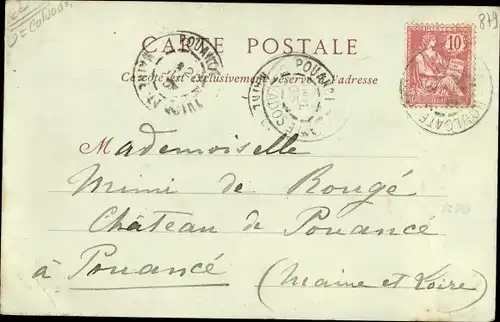 879
CARTE POSTALE
Ce côté est exclusivement réservé à l'adresse
10
POUANCÉ
POUANCÉ
HOULGATE
Mademoiselle
Mimi de Rougé
Château de Pouancé
à Pouancé (Maine et Loire)